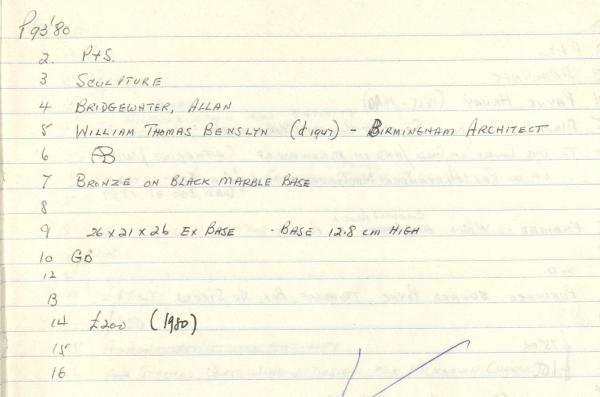 P93'80
2. P+S.
3 SCULPTURE
4 BRIDGEWATER, ALLAN
5 WILLIAM THOMAS BENSLYN (d1947) - BIRMINGHAM ARCHITECT
6 AB
7 BRONZE ON BLACK MARBLE BASE
8
9 26 x 21 x 26 EX BASE - BASE 12.8 cm HIGH
10 GB
12
13
14 £200 (1980)
15
16